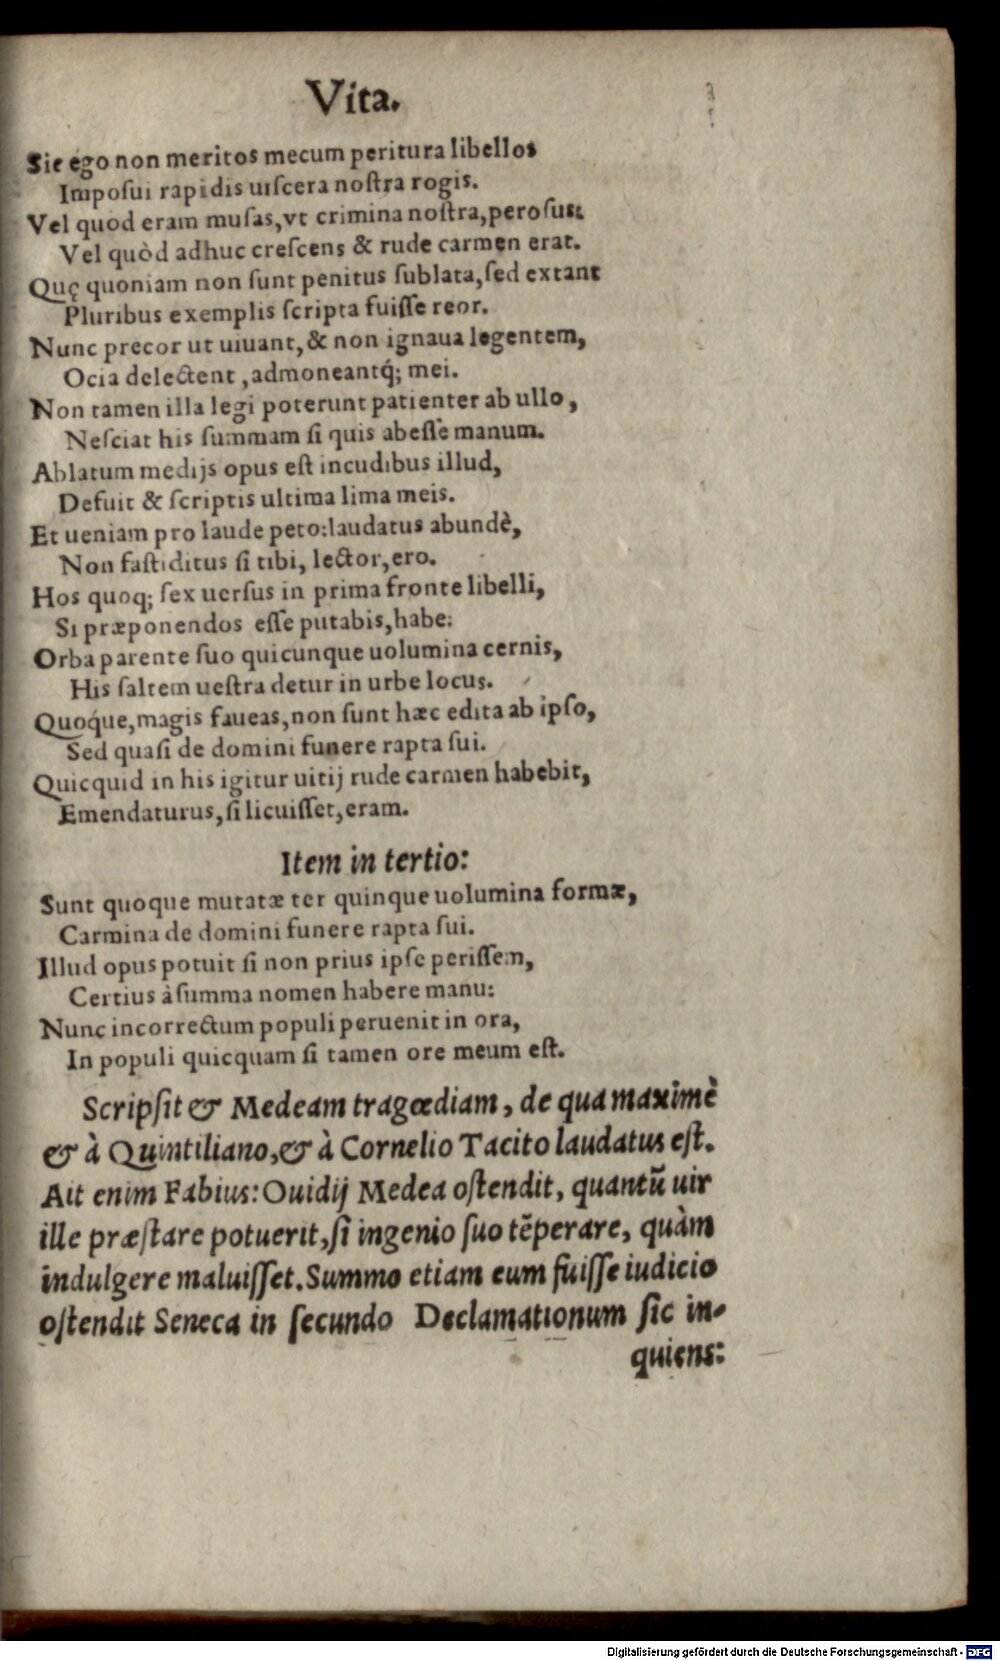 Vita.
Sic ego non meritos mecum peritura libellos
Imposui rapidis uiscera nostra rogis.
Vel quod eram musas, vt crimina nostra, perosus:
Vel quòd adhuc crescens & rude carmen erat.
Quę quoniam non sunt penitus sublata, sed extant
Pluribus exemplis scripta fuisse reor.
Nunc precor ut uiuant, & non ignaua legentem,
Ocia delectent, admoneantq́; mei.
Non tamen illa legi poterunt patienter ab ullo,
Nesciat his summam si quis abesse manum.
Ablatum medijs opus est incudibus illud,
Defuit & scriptis ultima lima meis.
Et ueniam pro laude peto: laudatus abundè,
Non fastiditus si tibi, lector, ero.
Hos quoq; sex uersus in prima fronte libelli,
Si præponendos esse putabis, habe:
Orba parente suo quicunque uolumina cernis,
His saltem uestra detur in urbe locus.
Quoq́ue, magis faueas, non sunt hæc edita ab ipso,
Sed quasi de domini funere rapta sui.
Quicquid in his igitur uitij rude carmen habebit,
Emendaturus, si licuisset, eram.
Item in tertio:
Sunt quoque mutatæ ter quinque uolumina formæ,
Carmina de domini funere rapta sui.
Illud opus potuit si non prius ipse perissem,
Certius à summa nomen habere manu:
Nunc incorrectum populi peruenit in ora,
In populi quicquam si tamen ore meum est.
Scripsit & Medeam tragœdiam, de qua maximè
& à Quintiliano, & à Cornelio Tacito laudatus est.
Ait enim Fabius: Ouidij Medea ostendit, quantũ uir
ille præstare potuerit, si ingenio suo tẽperare, quàm
indulgere maluisset. Summo etiam eum fuisse iudicio
ostendit Seneca in secundo Declamationum sic in-
quiens:
Digitalisierung gefördert durch die Deutsche Forschungsgemeinschaft - DFG